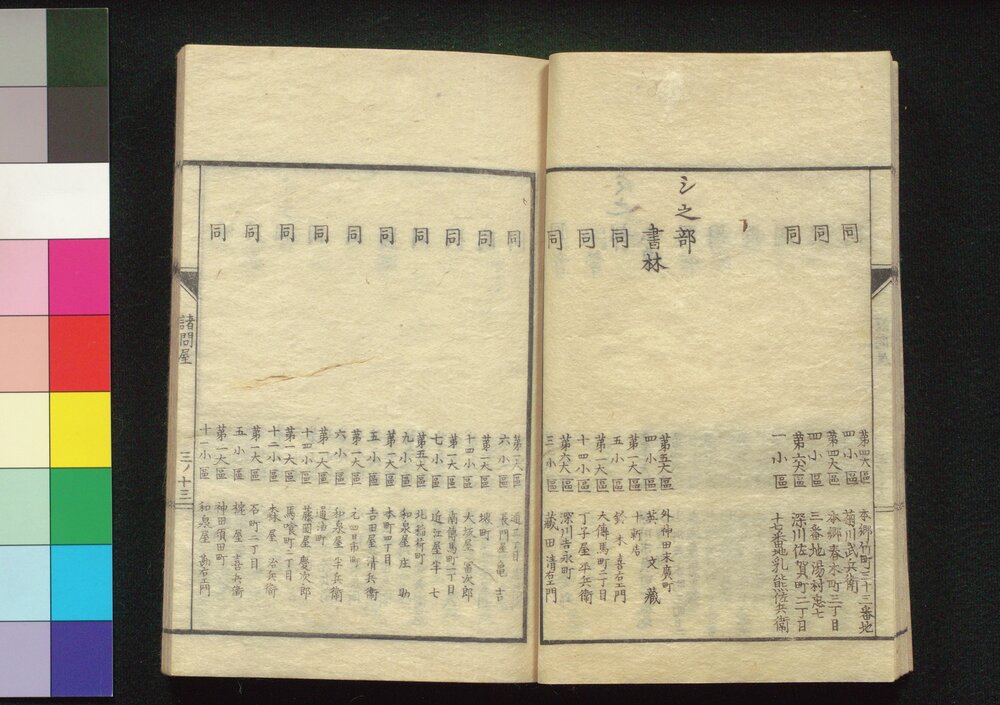 同
第四大區
四小區
本郷竹町三十三番地
菊川武兵衛
同
第四大區
四小區
本郷春木町三丁目
三番地湯村惠七
同
第六大區
一小區
深川佐賀町二丁目
十七番地乳熊佐兵衛
シ之部
書林
第五大區
四小區
外神田末廣町
英文藏
同
第一大區
五小區
十軒店
鈴木喜右エ門
同
第一大區
十四小區
大傳馬町二丁目
丁子屋平兵衛
同
第六大區
三小區
深川吉永町
藏田清右エ門
同
第一大區
六小區
通三丁目
長門屋亀吉
同
第一大區
十四小區
堺町
大坂屋富次郎
同
第一大區
七小區
南傳馬町一丁目
近江屋半七
同
第五大區
九小區
北稲荷町
和泉屋庄助
同
第一大區
五小區
本町四丁目
吉田屋清兵衛
同
第一大區
六小區
元四日市町
和泉屋半兵衛
同
第一大區
十四小區
通油町
藤岡屋慶次郎
同
第一大區
十二小區
馬喰町二丁目
森屋治兵衛
同
第一大區
五小區
石町二丁目
椀屋喜兵衛
同
第一大區
十一小區
神田須田町
和泉屋勘右エ門
諸問屋
三ノ十三